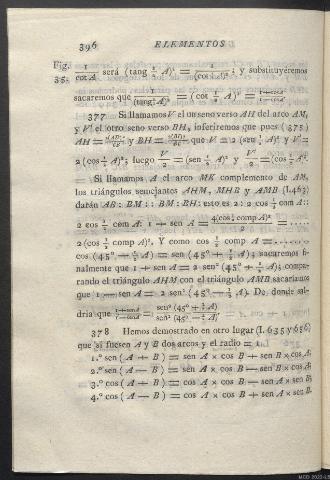 396 ELEMENTOS
Fig. 1/cot A será (tang ½ A)² = 1/(cot ½ A)² ; y substituyéremos
35.
sacaremos que 1/(tang ½ A)² = (cot ½ A)² =
377 Si llamamos V el un seno verso AH del arco AM,
y V' el otro seno verso BH, inferirémos que pues (375)
AH = y BH = que V = 2 (sen ½ A)² y V' =
2 (cos ½ A)²; luego V/2 = (sen ½ A)² y V'/2 = (cos ½ A)².
Si llamamos A el arco MK complemento de AM,
los triángulos semejantes AHM, MHB y AMB (I.463)
darán AB : BM :: BM : BH; esto es 2 : 2 cos ½ com A ::
2 cos ½ com A : 1 + sen A = 4(cos ½ comp A)²/2 = ......
2 (cos ½ comp A)². Y como cos ½ comp A = ......
cos (45° + ½ A) = sen (45° + ½ A); sacaremos fi-
nalmente que 1 + sen A = 2 sen² (45° + ½ A); compa-
rando el triángulo AHM con el triángulo AMB sacaríamos
que 1 — sen A = 2 sen² (45° — ½ A). De donde sal-
dria que 1+sen A/1—sen A = sen² (45° + ½ A)/sen² (45° — ½ A)
378 Hemos demostrado en otro lugar (I. 635 y 656)
que si fuesen A y B dos arcos y el radio = 1
1.° sen (A + B) = sen A × cos B + sen B × cos A
2.° sen (A — B) = sen A × cos B — sen B × cos A
3.° cos (A + B) = cos A × cos B — sen A × sen B
4.° cos (A — B) = cos A × cos B + sen A × sen B.